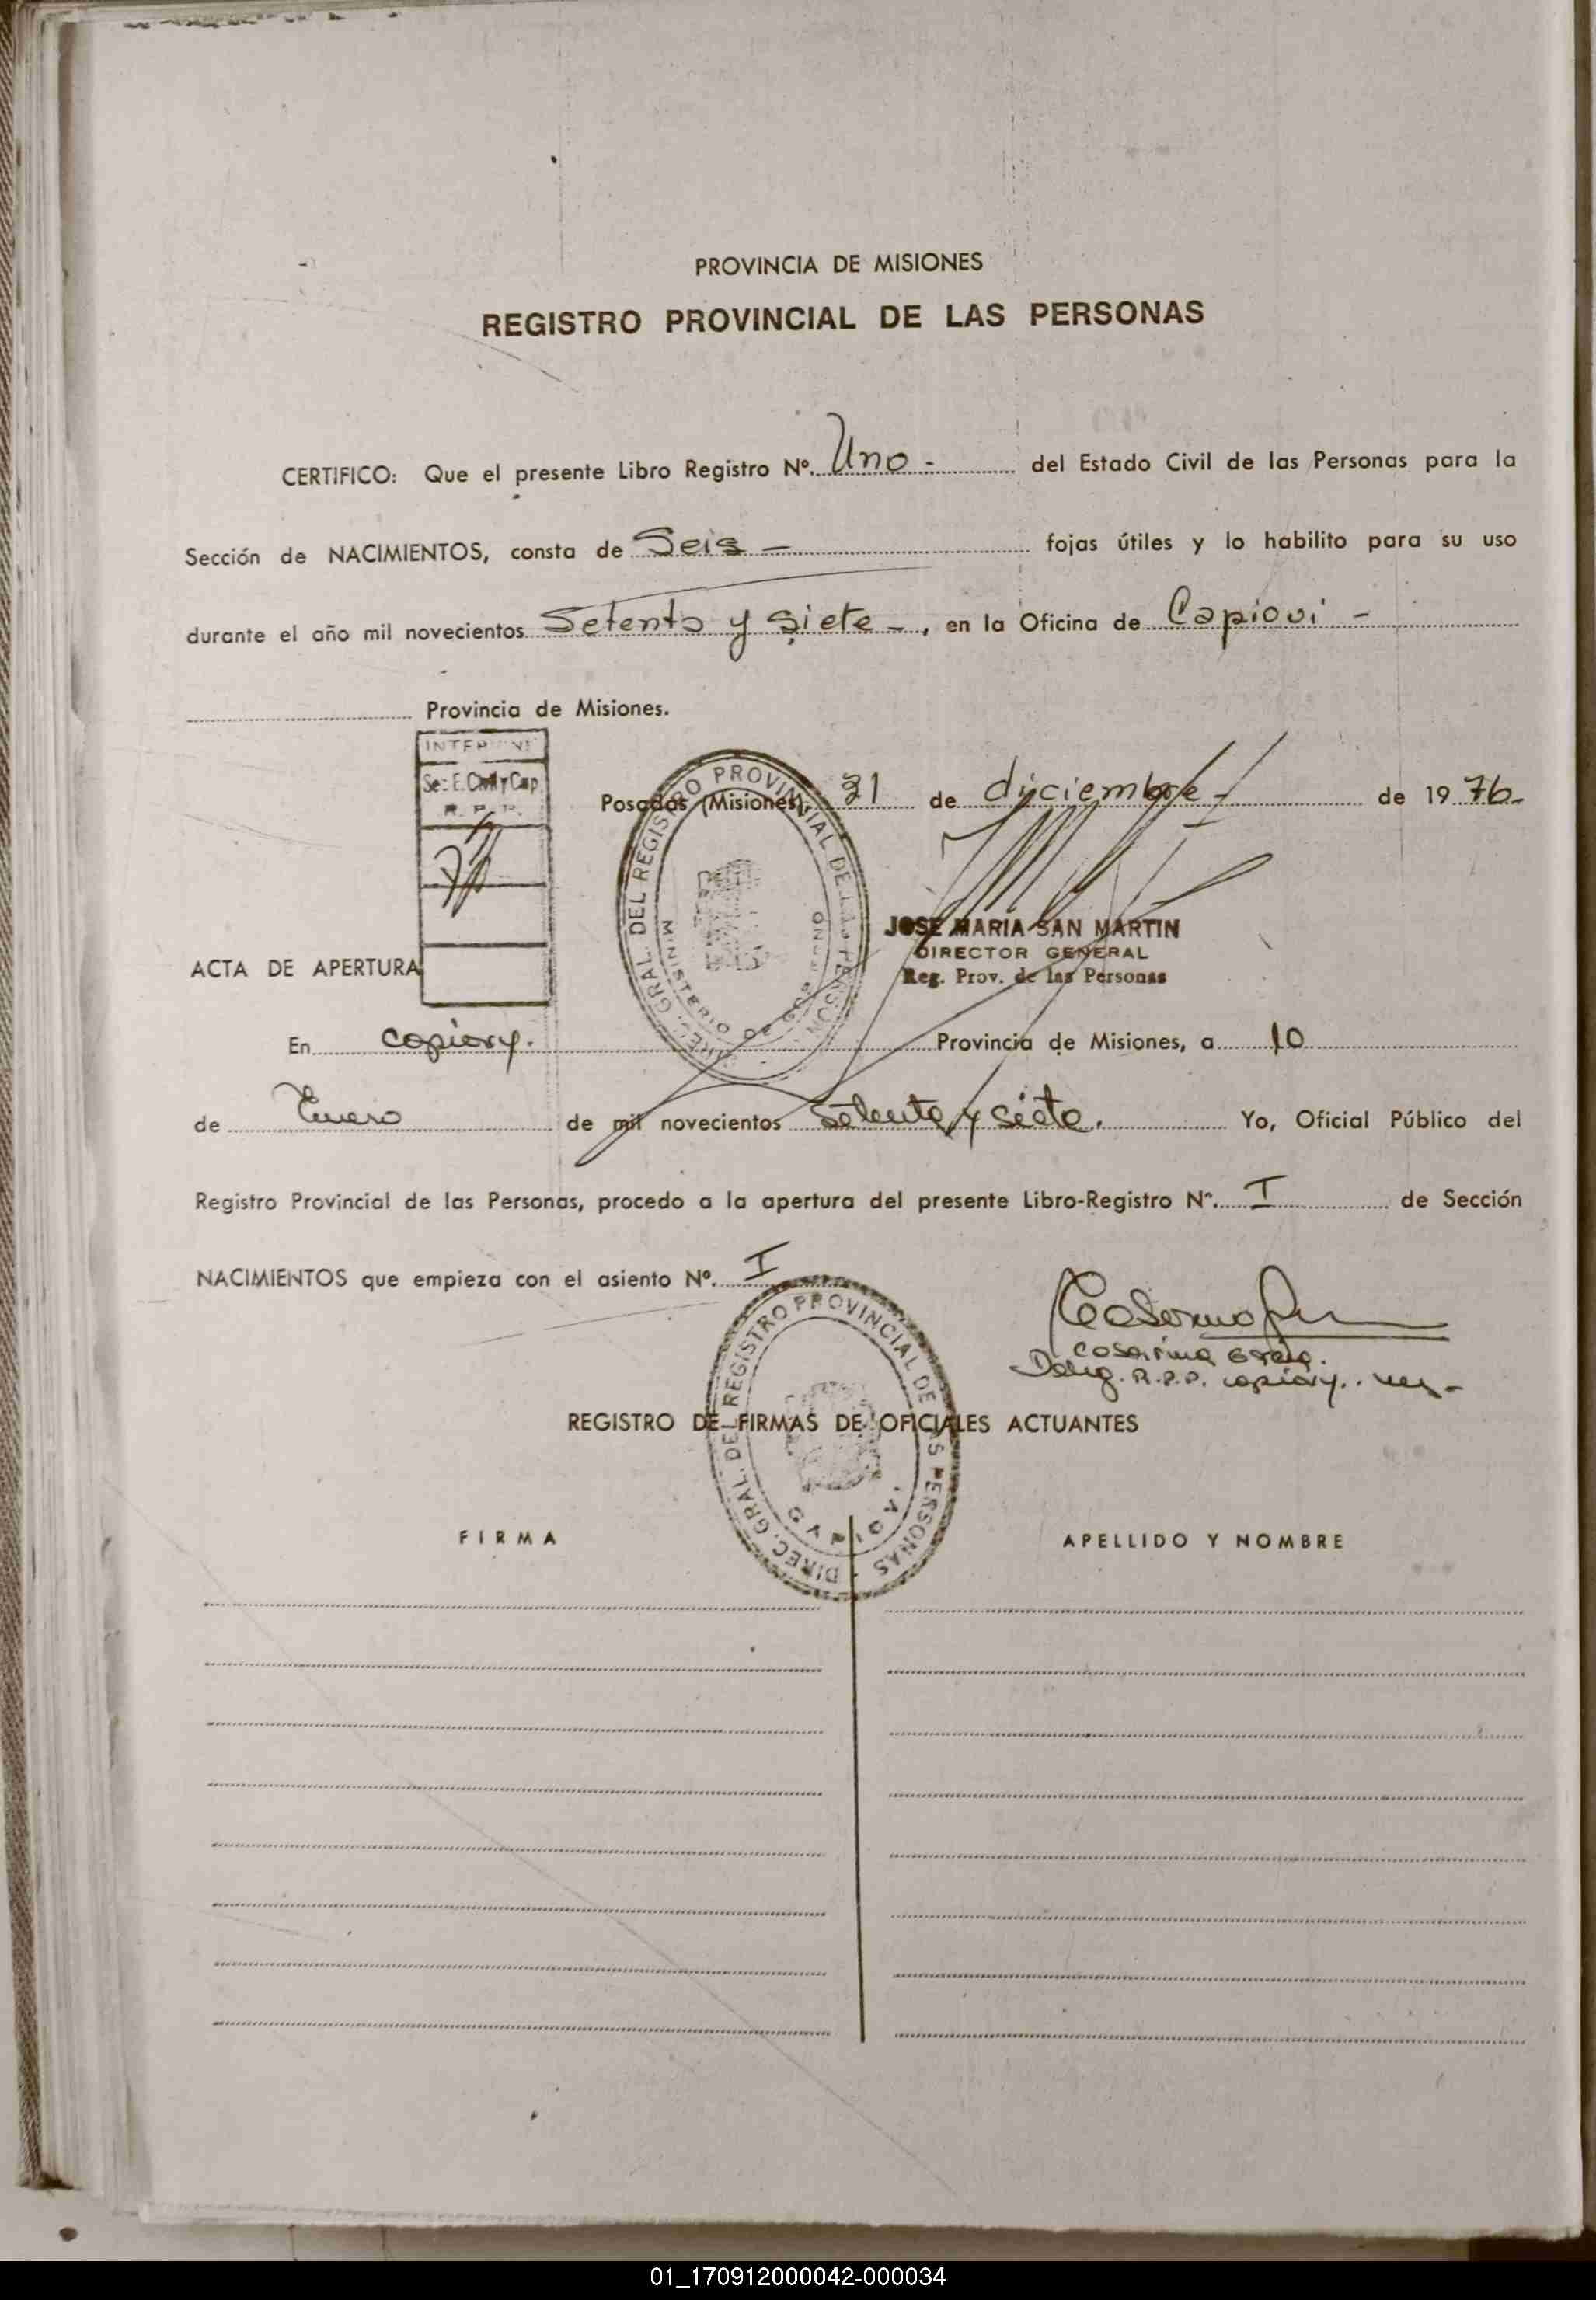 PROVINCIA DE MISIONES
REGISTRO PROVINCIAL DE LAS PERSONAS
CERTIFICO: Que el presente Libro Registro Nº. Uno - del Estado Civil de las Personas para la
Sección de NACIMIENTOS, consta de Seis - fojas útiles y lo habilito para su uso
durante el año mil novecientos Setenta y siete -, en la Oficina de Capiovi -
Provincia de Misiones.
Sec E. Civil y Cap.
R. P. P.
Posadas (Misiones), 31 de diciembre - de 19 76-
DIREC. GRAL. DEL REGISTRO PROVINCIAL DE LAS PERSONAS
MINISTERIO DE GOBIERNO
JOSE MARIA SAN MARTIN
DIRECTOR GENERAL
Reg. Prov. de las Personas
ACTA DE APERTURA
En Capiovy. Provincia de Misiones, a 10
de Enero de mil novecientos Setenta y siete. Yo, Oficial Público del
Registro Provincial de las Personas, procedo a la apertura del presente Libro-Registro Nº. I de Sección
NACIMIENTOS que empieza con el asiento Nº. I
Deleg. R.P.P. Capiovy.
DIREC. GRAL. DEL REGISTRO PROVINCIAL DE LAS PERSONAS
REGISTRO DE FIRMAS DE OFICIALES ACTUANTES
FIRMA APELLIDO Y NOMBRE
01_170912000042-000034